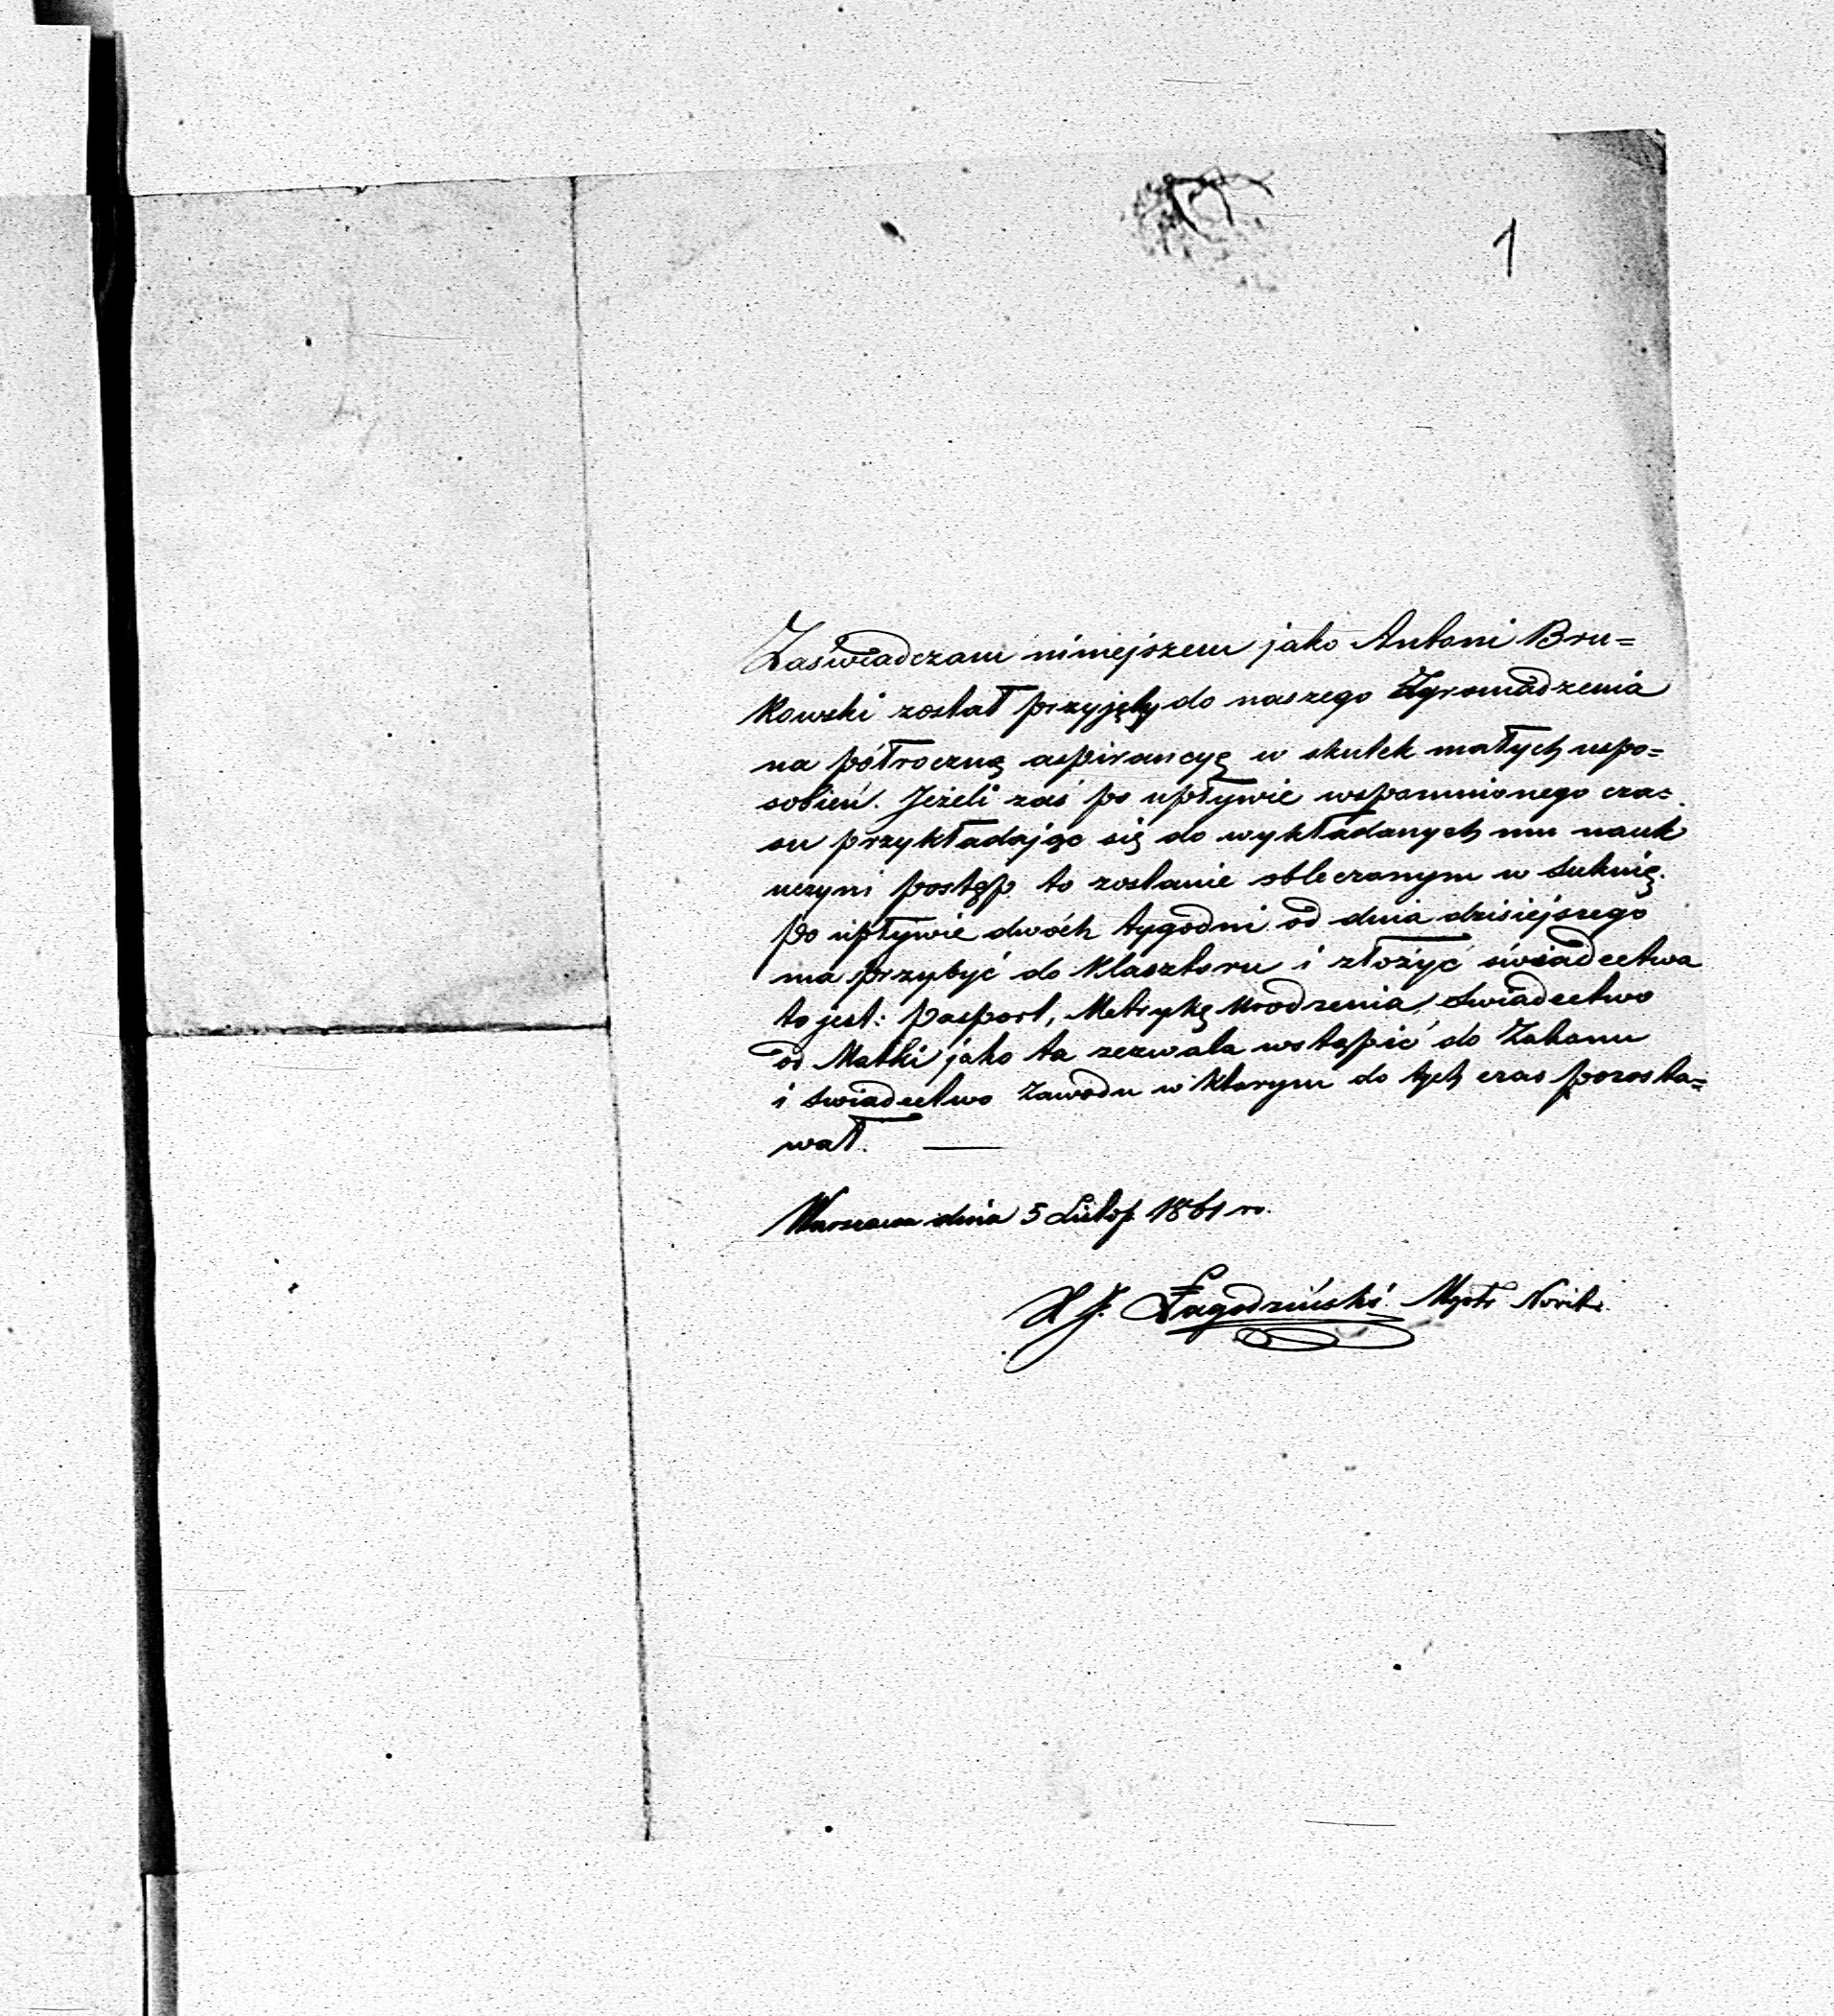 1
Zaświadczam niniejszem jako Antoni Bru=
kowski został przyjęty do naszego Zgromadzenia
na półroczną aspirancyę w skutek małych uspo=
sobień. Jeżeli zaś po upływie wspomnionego cza=
su przykładając się do wykładanych mu nauk
uczyni postęp to zostanie obleczonym w suknię.
po upływie dwóch tygodni od dnia dzisiejszego
ma przybyć do Klasztoru i złożyć świadectwa
to jest: pasport, Metrykę urodzenia, świadectwo
od Matki jako ta zezwala wstąpić do Zakonu
i swiadectwo Zawodu w ktorym do tych czas pozosta=
wał.
Warszawa dnia 5 Listop. 1861 ro.
X J. Łagodziński Mgstr Novit.